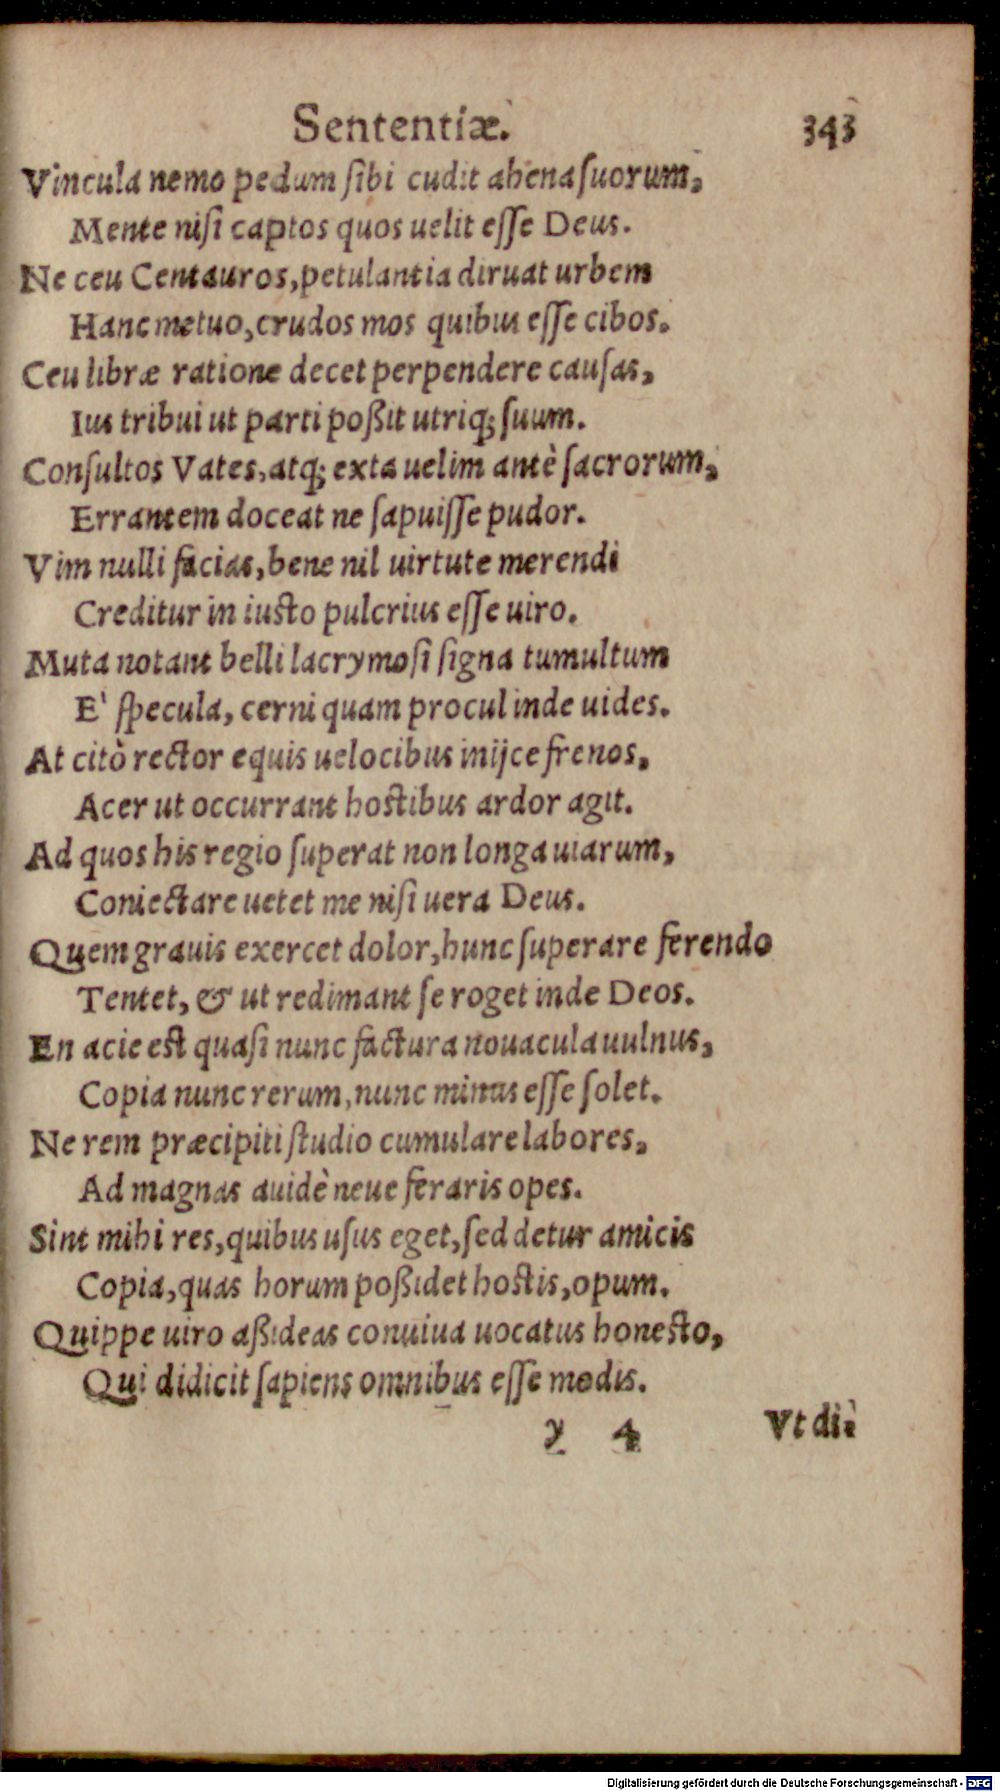 Sententiæ. 343
Vincula nemo pedum ſibi cudit ahena ſuorum,
Mente niſi captos quos uelit eſſe Deus.
Ne ceu Centauros, petulantia diruat urbem
Hanc metuo, crudos mos quibus eſſe cibos.
Ceu libræ ratione decet perpendere cauſas,
Ius tribui ut parti poßit utriq; ſuum.
Conſultos Vates, atq; exta uelim antè ſacrorum,
Errantem doceat ne ſapuiſſe pudor.
Vim nulli facias, bene nil uirtute merendi
Creditur in iuſto pulcrius eſſe uiro.
Muta notant belli lacrymoſi ſigna tumultum
E' ſpecula, cerni quam procul inde uides.
At citò rector equis uelocibus inijce frenos,
Acer ut occurrant hoſtibus ardor agit.
Ad quos his regio ſuperat non longa uiarum,
Coniectare uetet me niſi uera Deus.
Quem grauis exercet dolor, hunc ſuperare ferendo
Tentet, & ut redimant ſe roget inde Deos.
En acie eſt quaſi nunc factura nouacula uulnus,
Copia nunc rerum, nunc minus eſſe ſolet.
Ne rem præcipiti ſtudio cumulare labores,
Ad magnas auidè neue feraris opes.
Sint mihi res, quibus uſus eget, ſed detur amicis
Copia, quas horum poßidet hoſtis, opum.
Quippe uiro aßideas conuiua uocatus honeſto,
Qui didicit ſapiens omnibus eſſe modis.
y 4 Vt di-
Digitalisierung gefördert durch die Deutsche Forschungsgemeinschaft - DFG